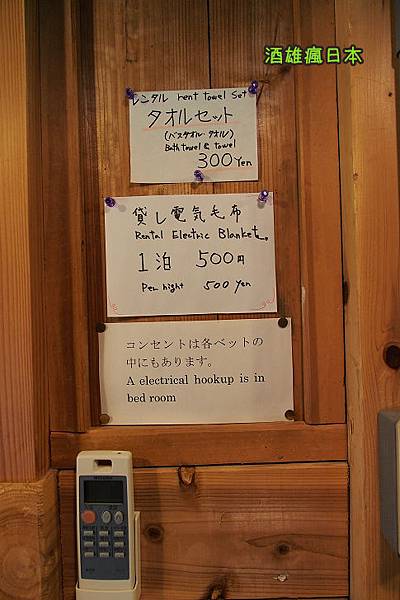 酒雄瘋日本
レンタル rent towel set
タオルセット
(バスタオル・タオル)
Bath towel & towel
300 yen
貸し電気毛布
Rental Electric Blanket。
1泊 500円
Per night 500 yen
コンセントは各ベットの
中にもあります。
A electrical hookup is in
bed room